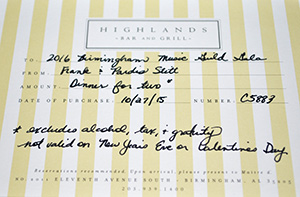 HIGHLANDS
BAR AND GRILL
TO 2016 Birmingham Music Guild Gala
FROM Frank & Pardis Stitt
AMOUNT Dinner for two *
DATE OF PURCHASE 10/27/15 NUMBER C5883
* excludes alcohol, tax, & gratuity
not valid on New Years Eve or Valentines Day
Reservations recommended. Upon arrival, please present to Maitre d
ELEVENTH AVENUE SOUTH, BIRMINGHAM, AL 35205
205.939.1400